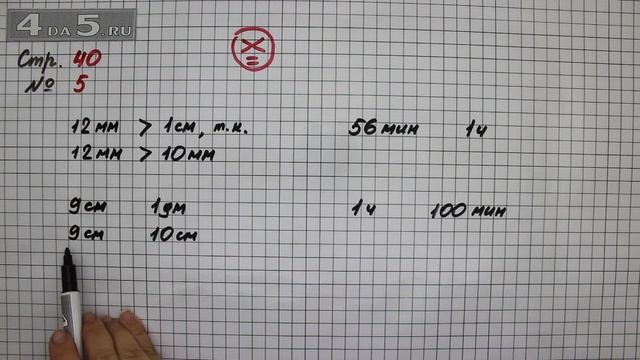 4 DA 5.RU
Стр. 40
№ 5
x
=
12 мм > 1 см, т.к.
12 мм > 10 мм
56 мин 1 ч
9 см 1 дм
9 см 10 см
1 ч 100 мин